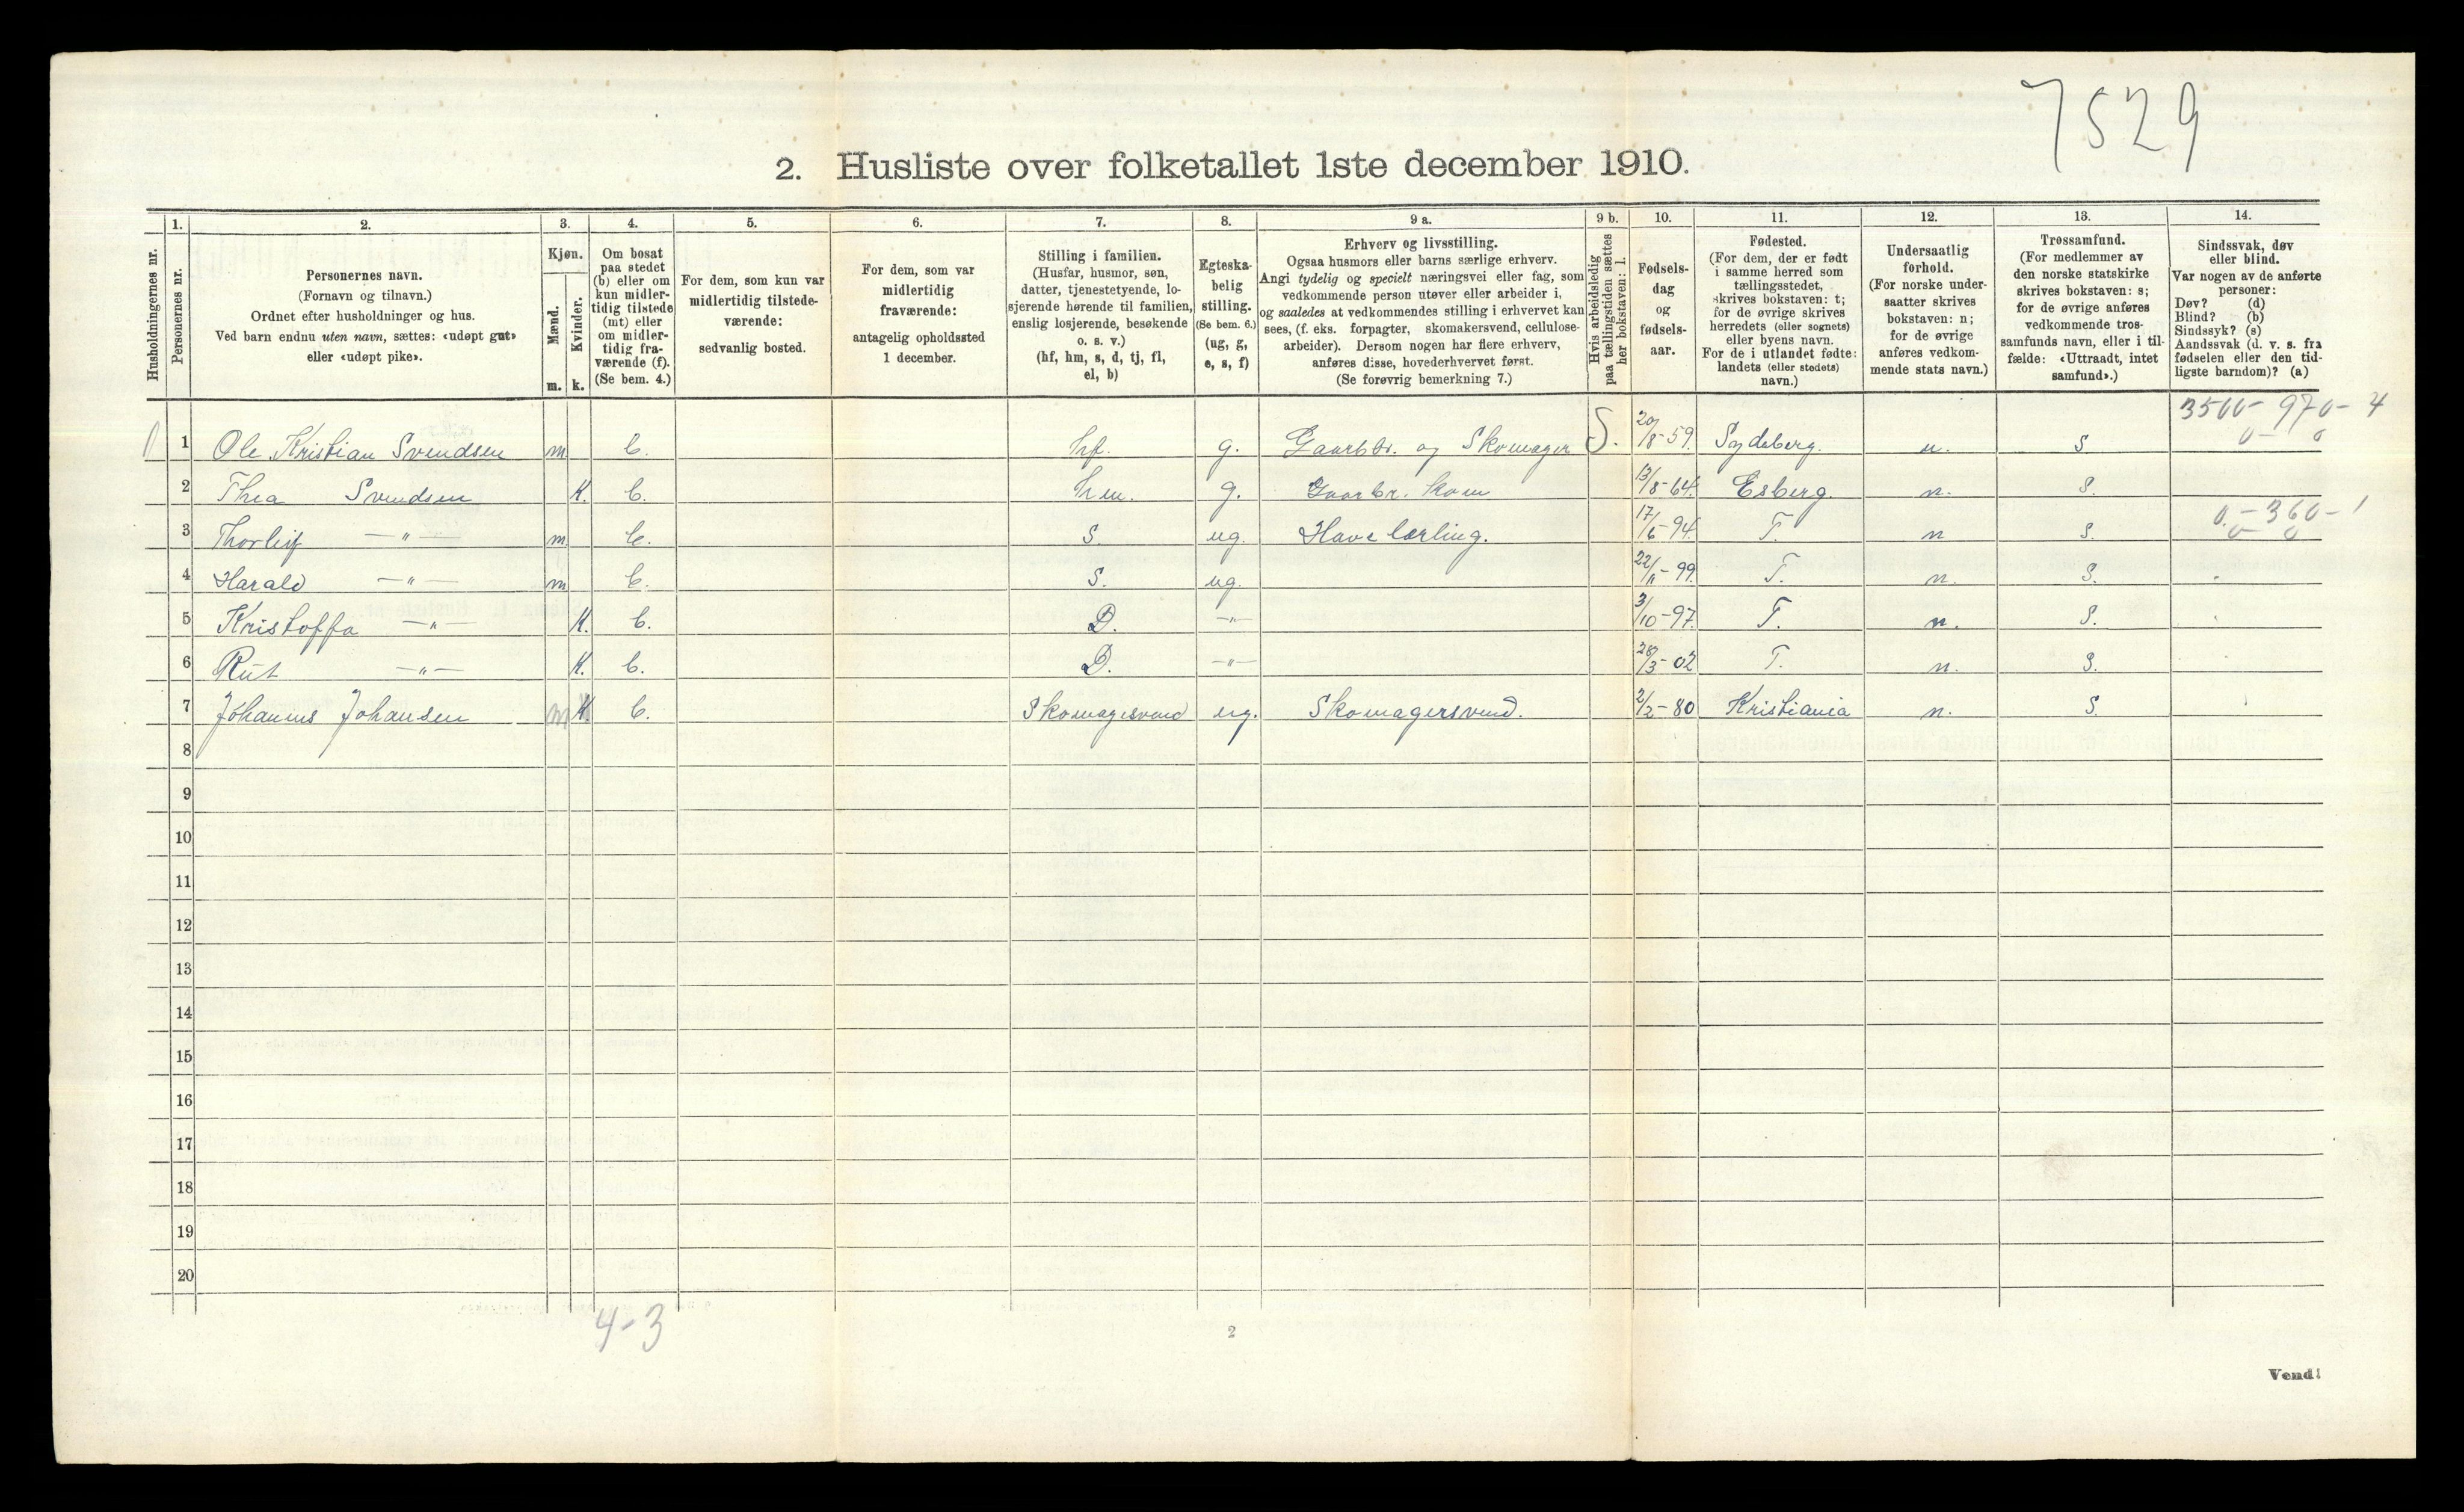 7529
2. Husliste over folketallet 1ste december 1910.
Husholdningernes nr.
1.
Personernes nr.
2.
Personernes navn.
(Fornavn og tilnavn.)
Ordnet efter husholdninger og hus.
Ved barn endnu uten navn, sættes: «udøpt gut»
eller «udøpt pike».
3.
Kjøn.
Mænd.
m.
Kvinder.
k.
4.
Om bosat
paa stedet
(b) eller om
kun midler-
tidig tilstede
(mt) eller
om midler-
tidig fra-
værende (f).
(Se bem. 4.)
5.
For dem, som kun var
midlertidig tilstede-
værende:
sedvanlig bosted.
6.
For dem, som var
midlertidig
fraværende:
antagelig opholdssted
1 december.
7.
Stilling i familien.
(Husfar, husmor, søn,
datter, tjenestetyende, lo-
sjerende hørende til familien,
enslig losjerende, besøkende
o. s. v.)
(hf, hm, s, d, tj, fl,
el, b)
8.
Egteska-
belig
stilling.
(Se bem. 6.)
(ug, g,
e, s, f)
9 a.
Erhverv og livsstilling.
Ogsaa husmors eller barns særlige erhverv.
Angi tydelig og specielt næringsvei eller fag, som
vedkommende person utøver eller arbeider i,
og saaledes at vedkommendes stilling i erhvervet kan
sees, (f. eks. forpagter, skomakersvend, cellulose-
arbeider). Dersom nogen har flere erhverv,
anføres disse, hovederhvervet først.
(Se forøvrig bemerkning 7.)
9 b.
Hvis arbeidsledig
paa tællingstiden sættes
her bokstaven: l.
10.
Fødsels-
dag
og
fødsels-
aar.
11.
Fødested.
(For dem, der er født
i samme herred som
tællingsstedet,
skrives bokstaven: t;
for de øvrige skrives
herredets (eller sognets)
eller byens navn.
For de i utlandet fødte:
landets (eller stedets)
navn.)
12.
Undersaatlig
forhold.
(For norske under-
saatter skrives
bokstaven: n;
for de øvrige
anføres vedkom-
mende stats navn.)
13.
Trossamfund.
(For medlemmer av
den norske statskirke
skrives bokstaven: s;
for de øvrige anføres
vedkommende tros-
samfunds navn, eller i til-
fælde: «Uttraadt, intet
samfund».)
14.
Sindssvak, døv
eller blind.
Var nogen av de anførte
personer:
Døv? (d)
Blind? (b)
Sindssyk? (s)
Aandssvak (d. v. s. fra
fødselen eller den tid-
ligste barndom)? (a)
3500- 970- 4
0- 0
1 Ole Kristian Svendsen m b. hf. g. Gaarbr. og Skomager S. 20/8-59. n. S.
2 Thea Svendsen K. b. hm. g. Gaarbr. kom 13/8-64. Esberg. n. S.
0.-360-1
0 0
3 Thorleif —"— m b. S. ug. Have lærling. 17/6-94. T. n S.
4 Harald —"— m b. S. ug. 22/11-99. T. n. S.
5 Kristoffa —"— K. b. D. —"— 3/10-97. T. n. S.
6 Rut —"— K. b. D. —"— 28/3-02 T. n. S.
7 Johannes Johansen m K. b. Skomagersvend ug. Skomagersvend. 2/2-80 Kristiania n. S.
8
9
10
11
12
13
14
15
16
17
18
19
20
4-3
2
Vend!